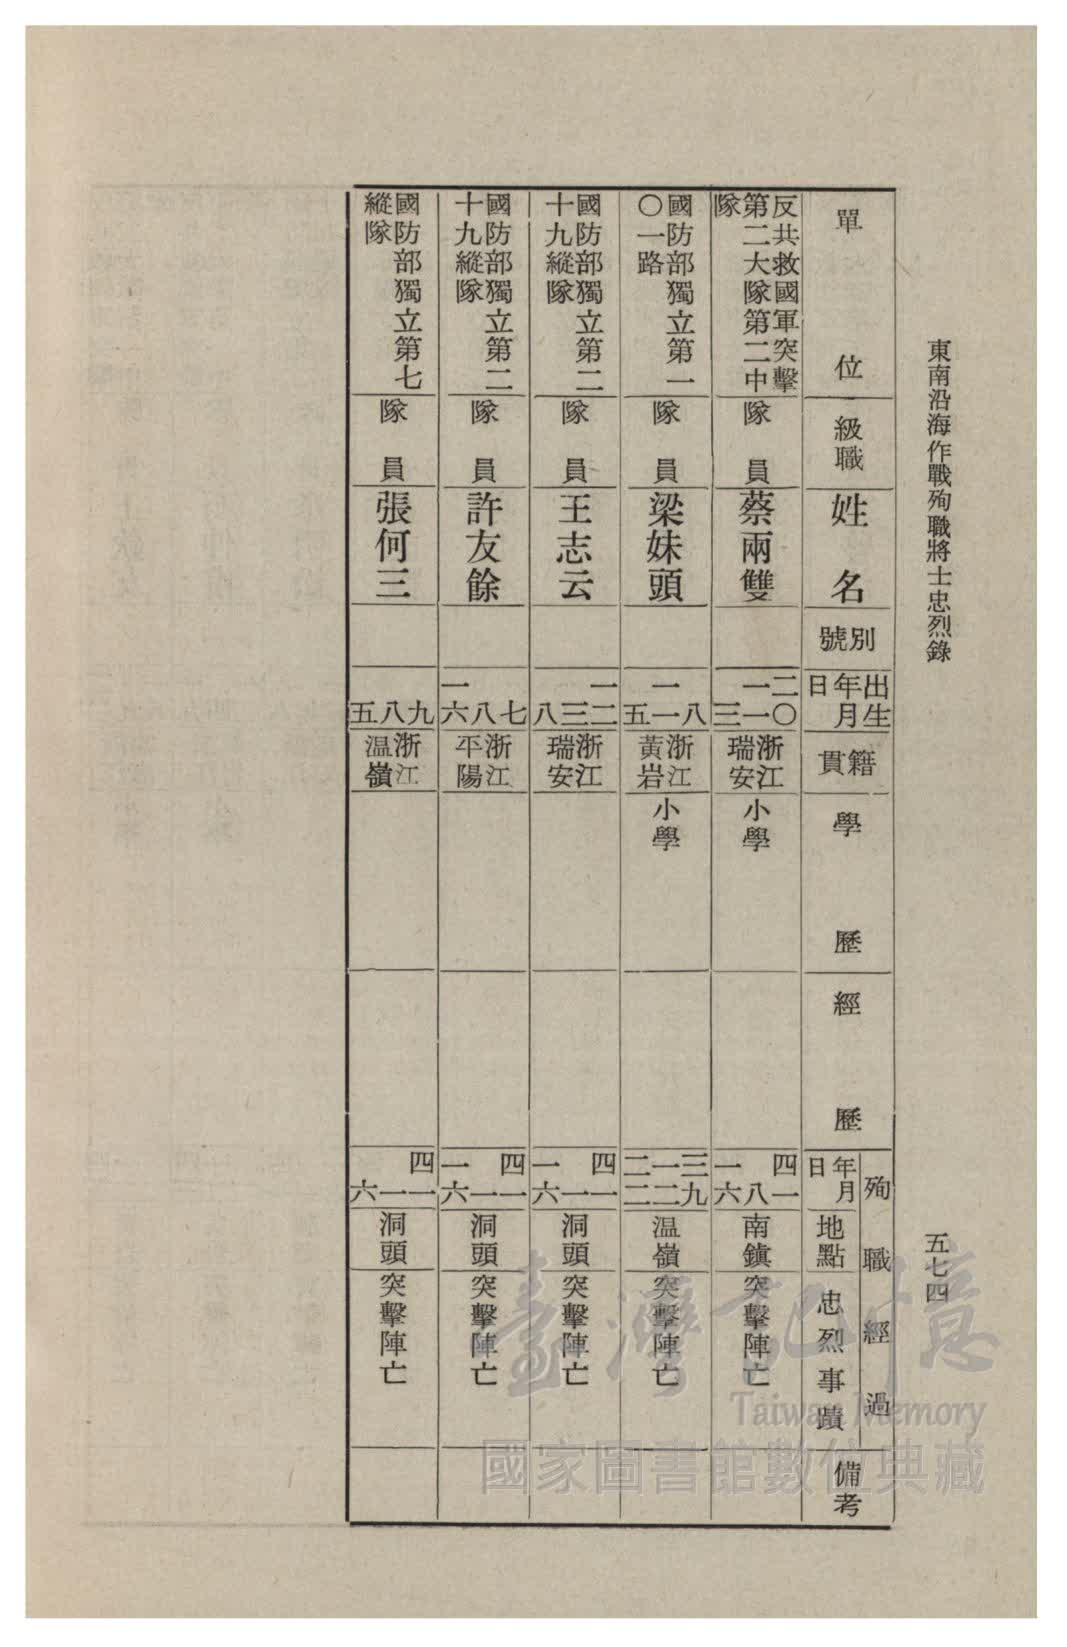 東南沿海作戰殉職將士忠烈錄
五七四
單位
級職
姓名
別號
出生年月日
籍貫
學歷
經歷
殉職經過
年月日
地點
忠烈事蹟
備考
反共救國軍突擊
第二大隊第二中
隊
隊員
蔡兩雙
二〇
一一
三
浙江
瑞安
小學
四一
八
一六
南鎮
突擊陣亡
國防部獨立第一
〇一路
隊員
梁妹頭
八
一一
五
浙江
黃岩
小學
三九
一二
二二
温嶺
突擊陣亡
國防部獨立第二
十九縱隊
隊員
王志云
一二
三
八
浙江
瑞安
四一
一
一六
洞頭
突擊陣亡
國防部獨立第二
十九縱隊
隊員
許友餘
七
八
一六
浙江
平陽
四一
一
一六
洞頭
突擊陣亡
國防部獨立第七
縱隊
隊員
張何三
九
八
五
浙江
温嶺
四一
一
六
洞頭
突擊陣亡
臺灣記憶
Taiwan Memory
國家圖書館數位典藏